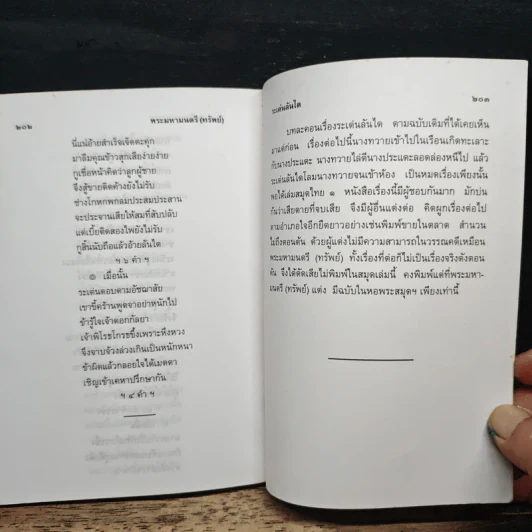 ๒๐๒
พระมหามนตรี (ทรัพย์)
นี่แน่อ้ายสำเร็จเจ็ดตะคุก
มาลืมคุณข้าวสุกเสียง่ายง่าย
กูเชื่อหน้าคิดว่าลูกผู้ชาย
จึงสู้ขายติดค้างยังไม่รับ
ช่างโกหกพกลมประสมประสาน
จะประจานเสียให้สมที่สับปลับ
แต่เบี้ยติดสองไพยังไม่รับ
กูสิ้นนับถือแล้วอ้ายลันได
ฯ ๖ คำ ฯ
๏ เมื่อนั้น
ระเด่นตอบตามอัชฌาสัย
เขาขี้คร้านพูดจาอย่าหนักไป
ข้ารู้ใจเจ้าดอกกัลยา
เจ้าพิโรธโกรธขึ้งเพราะหึงหวง
จึงจาบจ้วงล่วงเกินเป็นหนักหนา
ข้าผิดแล้วกลอยใจได้เมตตา
เชิญเข้าเคหาปรึกษากัน
ฯ ๔ คำ ฯ
ระเด่นลันได
๒๐๓
บทละคอนเรื่องระเด่นลันได ตามฉบับเดิมที่ได้เคยเห็น
มาแต่ก่อน เรื่องต่อไปนี้นางทวายเข้าไปในเรือนเกิดทะเลาะ
กับนางประแดะ นางทวายไล่ตีนางประแดะลอดล่องหนีไป แล้ว
ระเด่นลันไดโลมนางทวายจนเข้าห้อง เป็นหมดเรื่องเพียงนั้น
พอได้เล่มสมุดไทย ๑ หนังสือเรื่องนี้มีผู้ชอบกันมาก มักบ่น
กันว่าเสียดายที่จบเสีย จึงมีผู้อื่นแต่งต่อ คิดผูกเรื่องต่อไป
ตามอำเภอใจอีกยืดยาวอย่างเช่นพิมพ์ขายในตลาด สำนวน
ไม่ถึงตอนต้น ด้วยผู้แต่งไม่มีความสามารถในวรรณคดีเหมือน
พระมหามนตรี (ทรัพย์) ทั้งเรื่องที่ต่อก็ไม่เป็นเรื่องจริงดังตอน
ต้น จึงได้ตัดเสียไม่พิมพ์ในสมุดเล่มนี้ คงพิมพ์แต่ที่พระมหา-
มนตรี (ทรัพย์) แต่ง มีฉบับในหอพระสมุดฯ เพียงเท่านี้